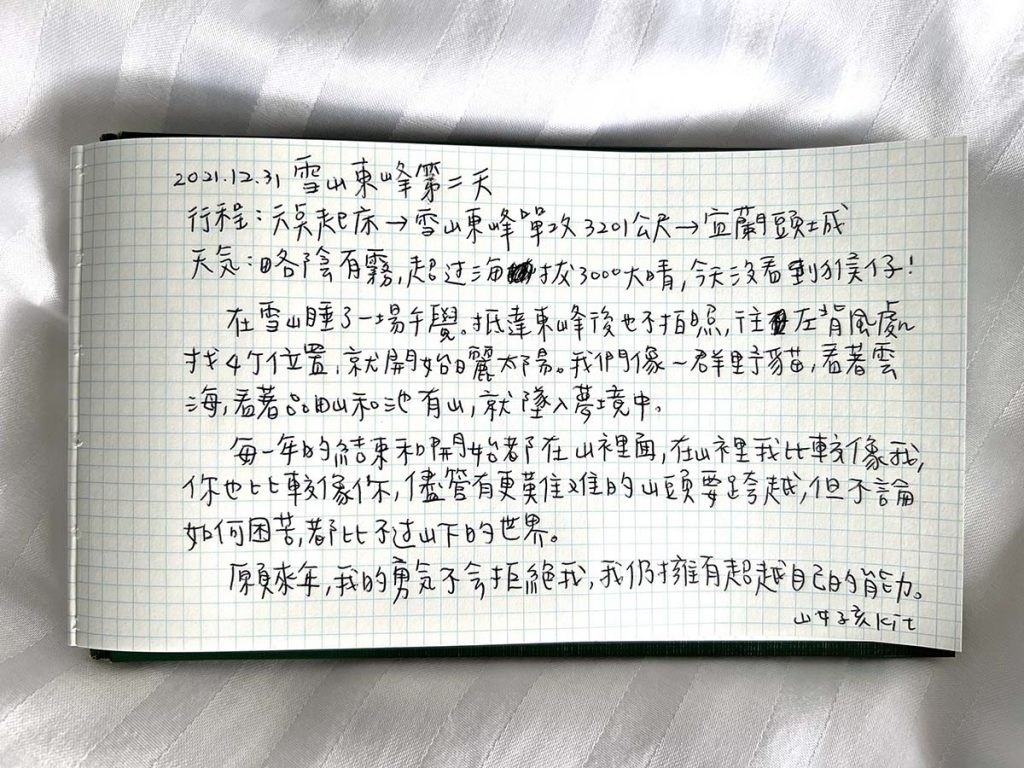 2021.12.31 雪山東峰第二天
行程：六点起床→雪山東峰單攻3201公尺→宜蘭頭城
天気：略陰有霧，超过海拔3000大晴，今天沒看到猴仔！
在雪山睡了一場午覺。抵達東峰後也不拍照，往左背風處
找4个位置，就開始曬太陽。我們像一群野貓，看著雲
海，看著品田山和池有山，就墜入夢境中。
每一年的結束和開始都在山裡面，在山裡我比較像我，
你也比較像你，儘管有更艱難的山頭要跨越，但不論
如何困苦，都比不过山下的世界。
願來年，我的勇気不会拒絕我，我仍擁有超越自己的能力。
山女孩Kit